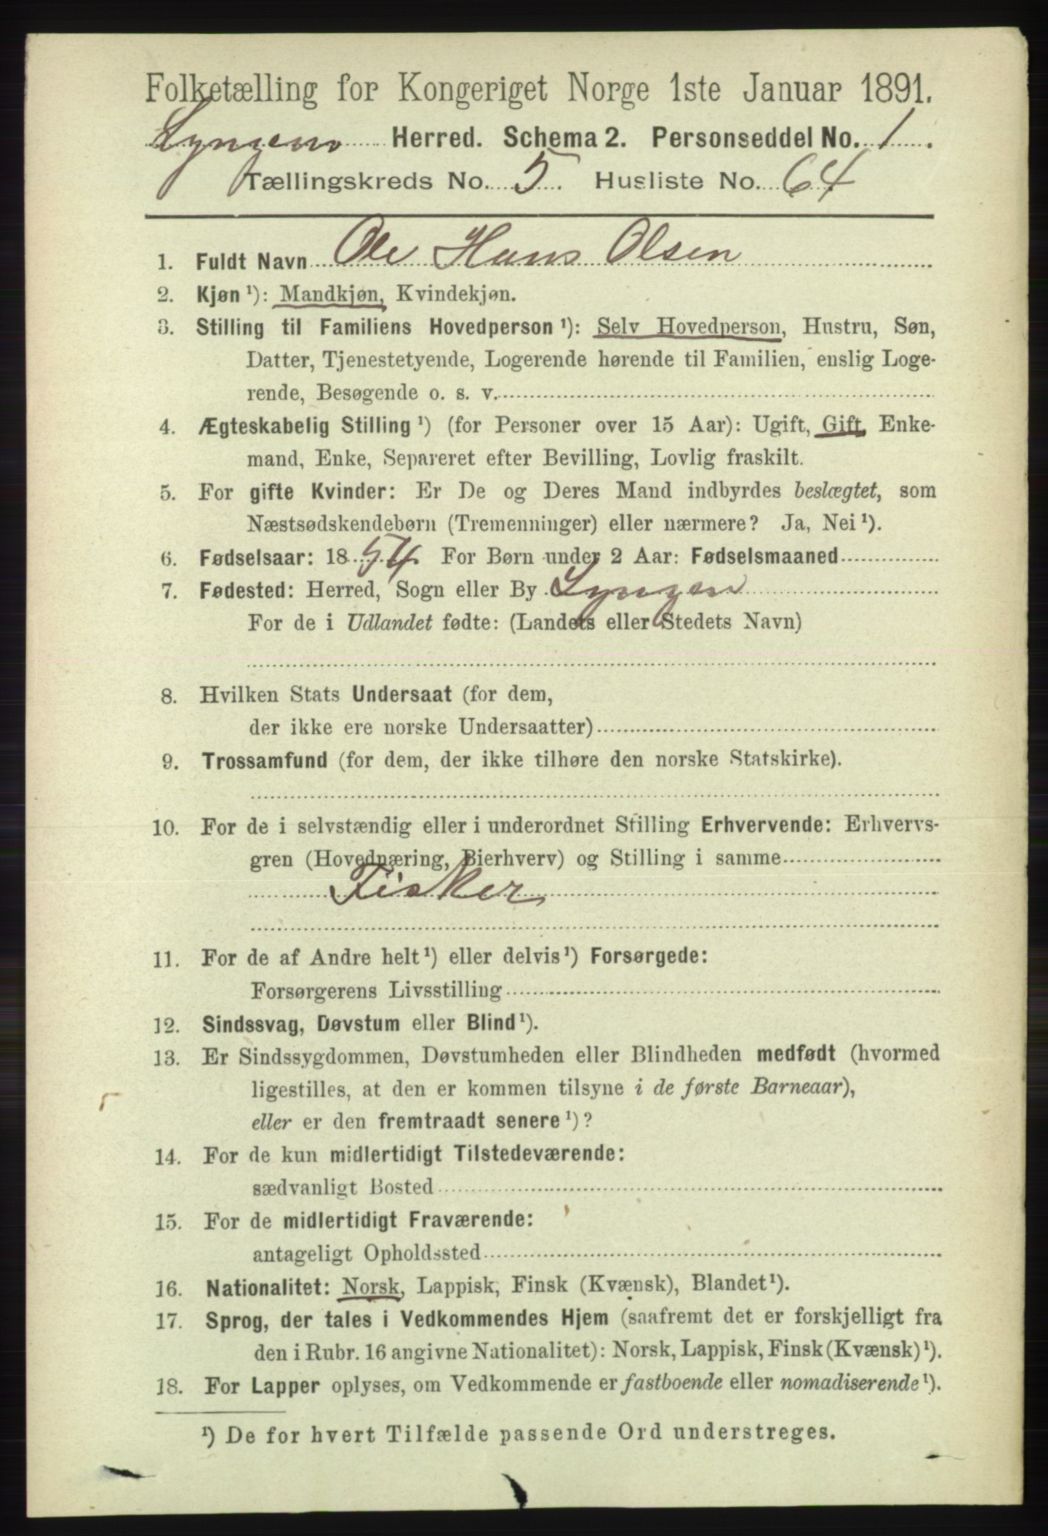 Folketælling for Kongeriget Norge 1ste Januar 1891.
Lyngen Herred. Schema 2. Personseddel No. 1.
Tællingskreds No. 5. Husliste No. 64
1. Fuldt Navn Ole Hans Olsen
2. Kjøn ¹): Mandkjøn, Kvindekjøn.
3. Stilling til Familiens Hovedperson ¹): Selv Hovedperson, Hustru, Søn,
Datter, Tjenestetyende, Logerende hørende til Familien, enslig Loge-
rende, Besøgende o. s. v.
4. Ægteskabelig Stilling ¹) (for Personer over 15 Aar): Ugift, Gift, Enke-
mand, Enke, Separeret efter Bevilling, Lovlig fraskilt.
5. For gifte Kvinder: Er De og Deres Mand indbyrdes beslægtet, som
Næstsødskendebørn (Tremenninger) eller nærmere? Ja, Nei ¹).
6. Fødselsaar: 1854. For Børn under 2 Aar: Fødselsmaaned
7. Fødested: Herred, Sogn eller By Lyngen
For de i Udlandet fødte: (Landets eller Stedets Navn)
8. Hvilken Stats Undersaat (for dem,
der ikke ere norske Undersaatter)
9. Trossamfund (for dem, der ikke tilhøre den norske Statskirke).
10. For de i selvstændig eller i underordnet Stilling Erhvervende: Erhvervs-
gren (Hovednæring, Bierhverv) og Stilling i samme
Fisker
11. For de af Andre helt ¹) eller delvis ¹) Forsørgede:
Forsørgerens Livsstilling
12. Sindssvag, Døvstum eller Blind ¹).
13. Er Sindssygdommen, Døvstumheden eller Blindheden medfødt (hvormed
ligestilles, at den er kommen tilsyne i de første Barneaar),
eller er den fremtraadt senere ¹)?
14. For de kun midlertidigt Tilstedeværende:
sædvanligt Bosted
15. For de midlertidigt Fraværende:
antageligt Opholdssted
16. Nationalitet: Norsk, Lappisk, Finsk (Kvænsk), Blandet ¹).
17. Sprog, der tales i Vedkommendes Hjem (saafremt det er forskjelligt fra
den i Rubr. 16 angivne Nationalitet): Norsk, Lappisk, Finsk (Kvænsk) ¹).
18. For Lapper oplyses, om Vedkommende er fastboende eller nomadiserende ¹).
¹) De for hvert Tilfælde passende Ord understreges.